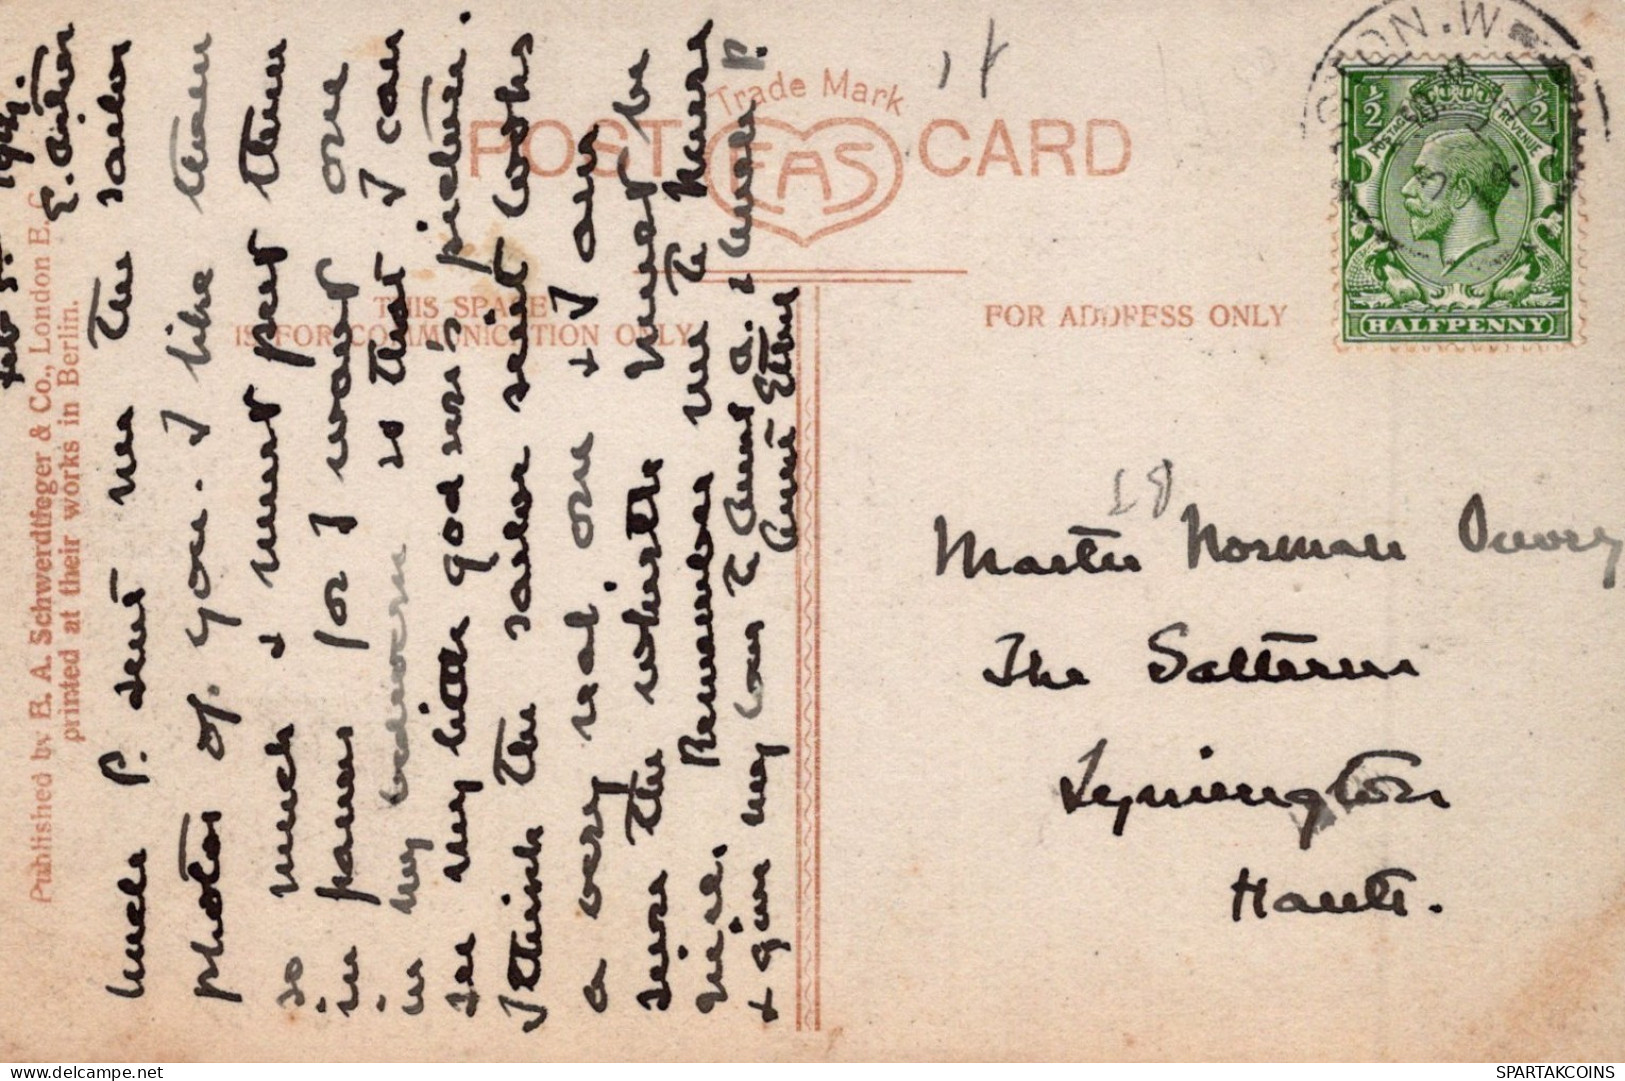 Feb 5th 1914.
E. Acton
Uncle P. sent me the sailor
photos of you. I like them
so much & must put them
in frames for I want one
in my bedroom so that I can
see my little godson's picture.
I think the sailor suit looks
a very real one & I am
sure the whistle must be
nice. Remember me to Nurse
& give my love to Aunt A. & Uncle P.
Aunt Ethel
Published by E. A. Schwerdtfeger & Co., London E.C.
printed at their works in Berlin.
Trade Mark
POST CARD
EAS
THIS SPACE
IS FOR COMMUNICATION ONLY
FOR ADDRESS ONLY
½ ½
POSTAGE REVENUE
HALFPENNY
Master Norman
The Salterns
Lymington
Hants.
SPARTAKCOINS